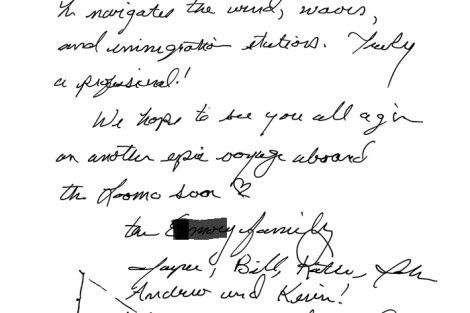 navigates the wind, waves,
and immigration stations. Truly
a profesional!
We hope to see you all agin
on another epic voyage aboard
the soon
the family
Bill,
Andrew and Kevin!